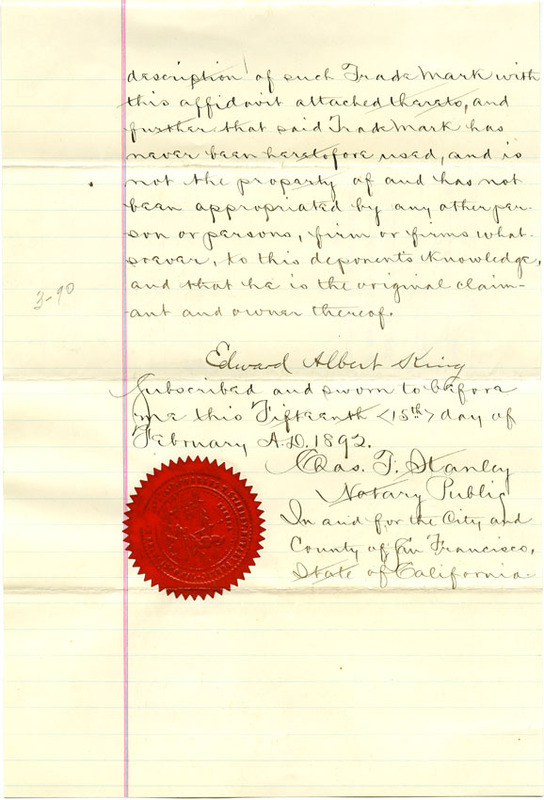 description of such Trade Mark with
this affidavit attached thereto, and
further that said Trade Mark has
never been heretofore used, and is
not the property of and has not
been appropriated by any other per-
son or persons, firm or firms what-
soever, to this deponents knowledge,
and that he is the original claim-
ant and owner thereof.
3-90
Edward Albert King
Subscribed and sworn to before
me this Fifteenth <15th> day of
February A.D. 1892.
Chas. T. Stanley
Notary Public
In and for the City and
County of San Francisco,
State of California